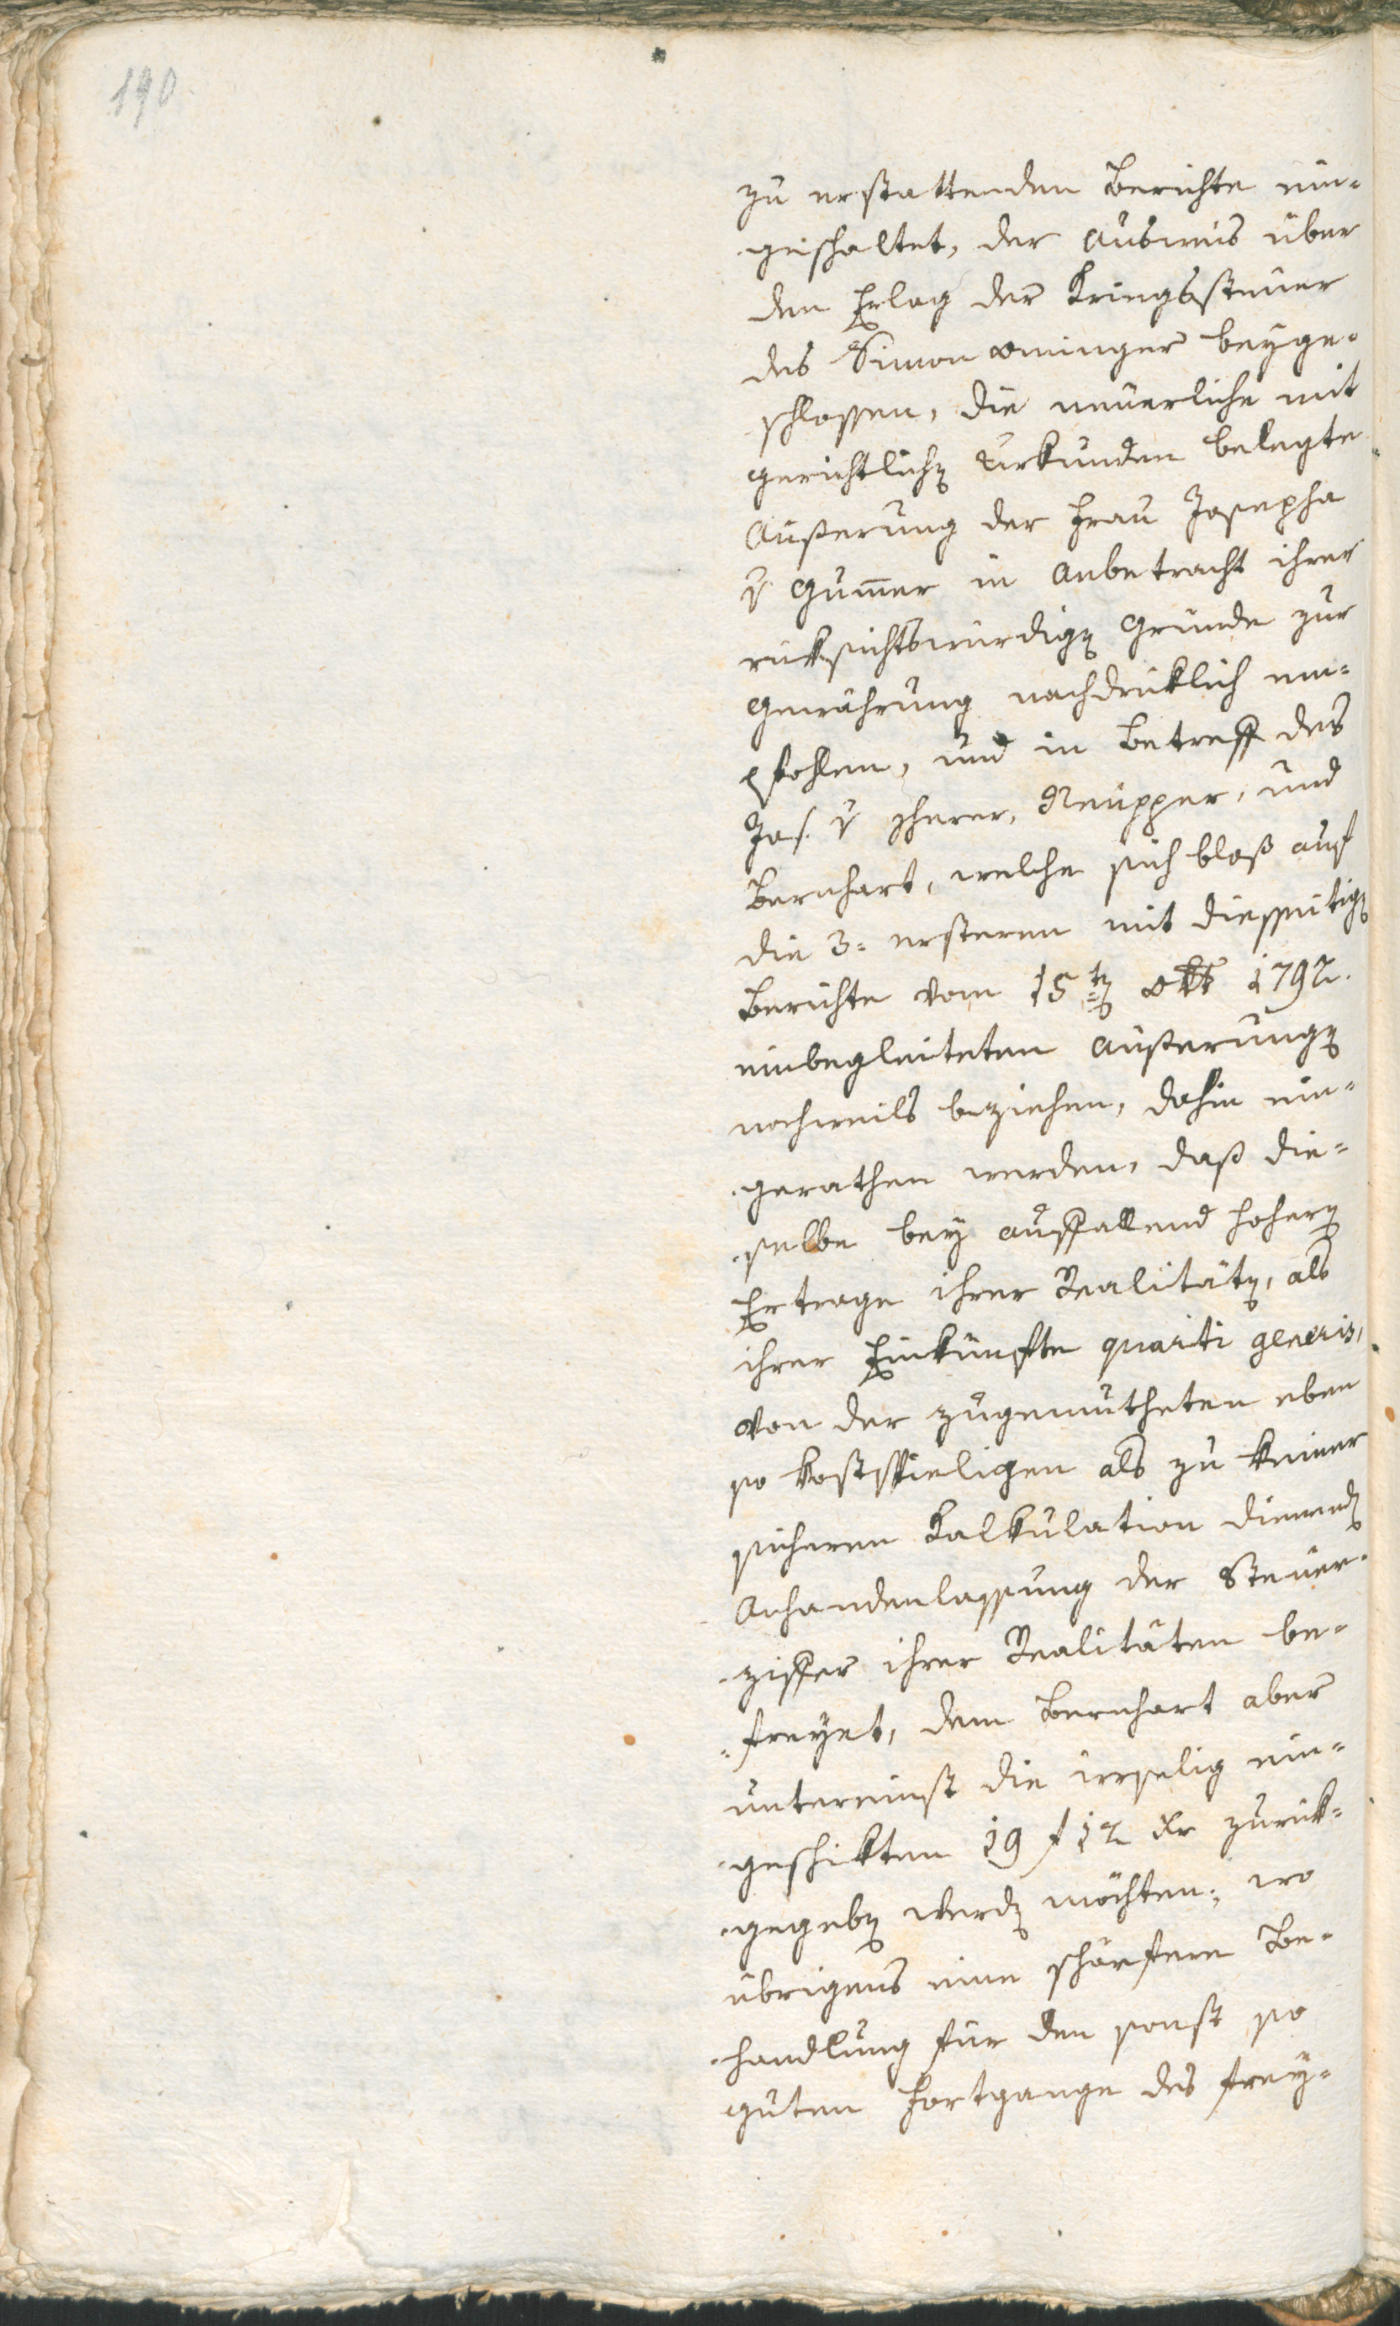 190
zu erstattenden Berichte ein-
geschaltet, der Ausweis über
den Erlag der Kriegssteuer
des Simon Öninger beyge-
schlossen, die neuerliche mit
gerichtlichen Urkunden belegte
Äußerung der Frau Josepha
v Gum̅er in Anbetracht ihrer
rücksichtswürdigen Gründe zur
Gewährung nachdrücklich em-
pfohlen, und in Betreff des
Jos. v Neupper, und
Bernhart, welche sich bloß auf
die 3: ersteren mit diesseitigen
Berichte vom 15ten Okt 1792.
einbegleiteten Äußerungen
nochweils beziehen, dahin ein-
gerathen werden, daß die-
selbe bey auffallend hoheren
Ertrage ihrer Realitäten, als
ihrer Einkünfte quarti generis,
von der zugemutheten eben
so kostspieligen als zu keiner
sicheren Kalkulation dienenden
Anhandenlassung der Steuer-
ziffer ihrer Realitäten be-
freyet, dem Bernhart aber
untereinst die irrselig ein-
geschikten 19 f 12 xr zurük-
gegeben werden möchten; wo
übrigens eine schärfere Be-
handlung für den sonst so
guten Fortgange des frey-